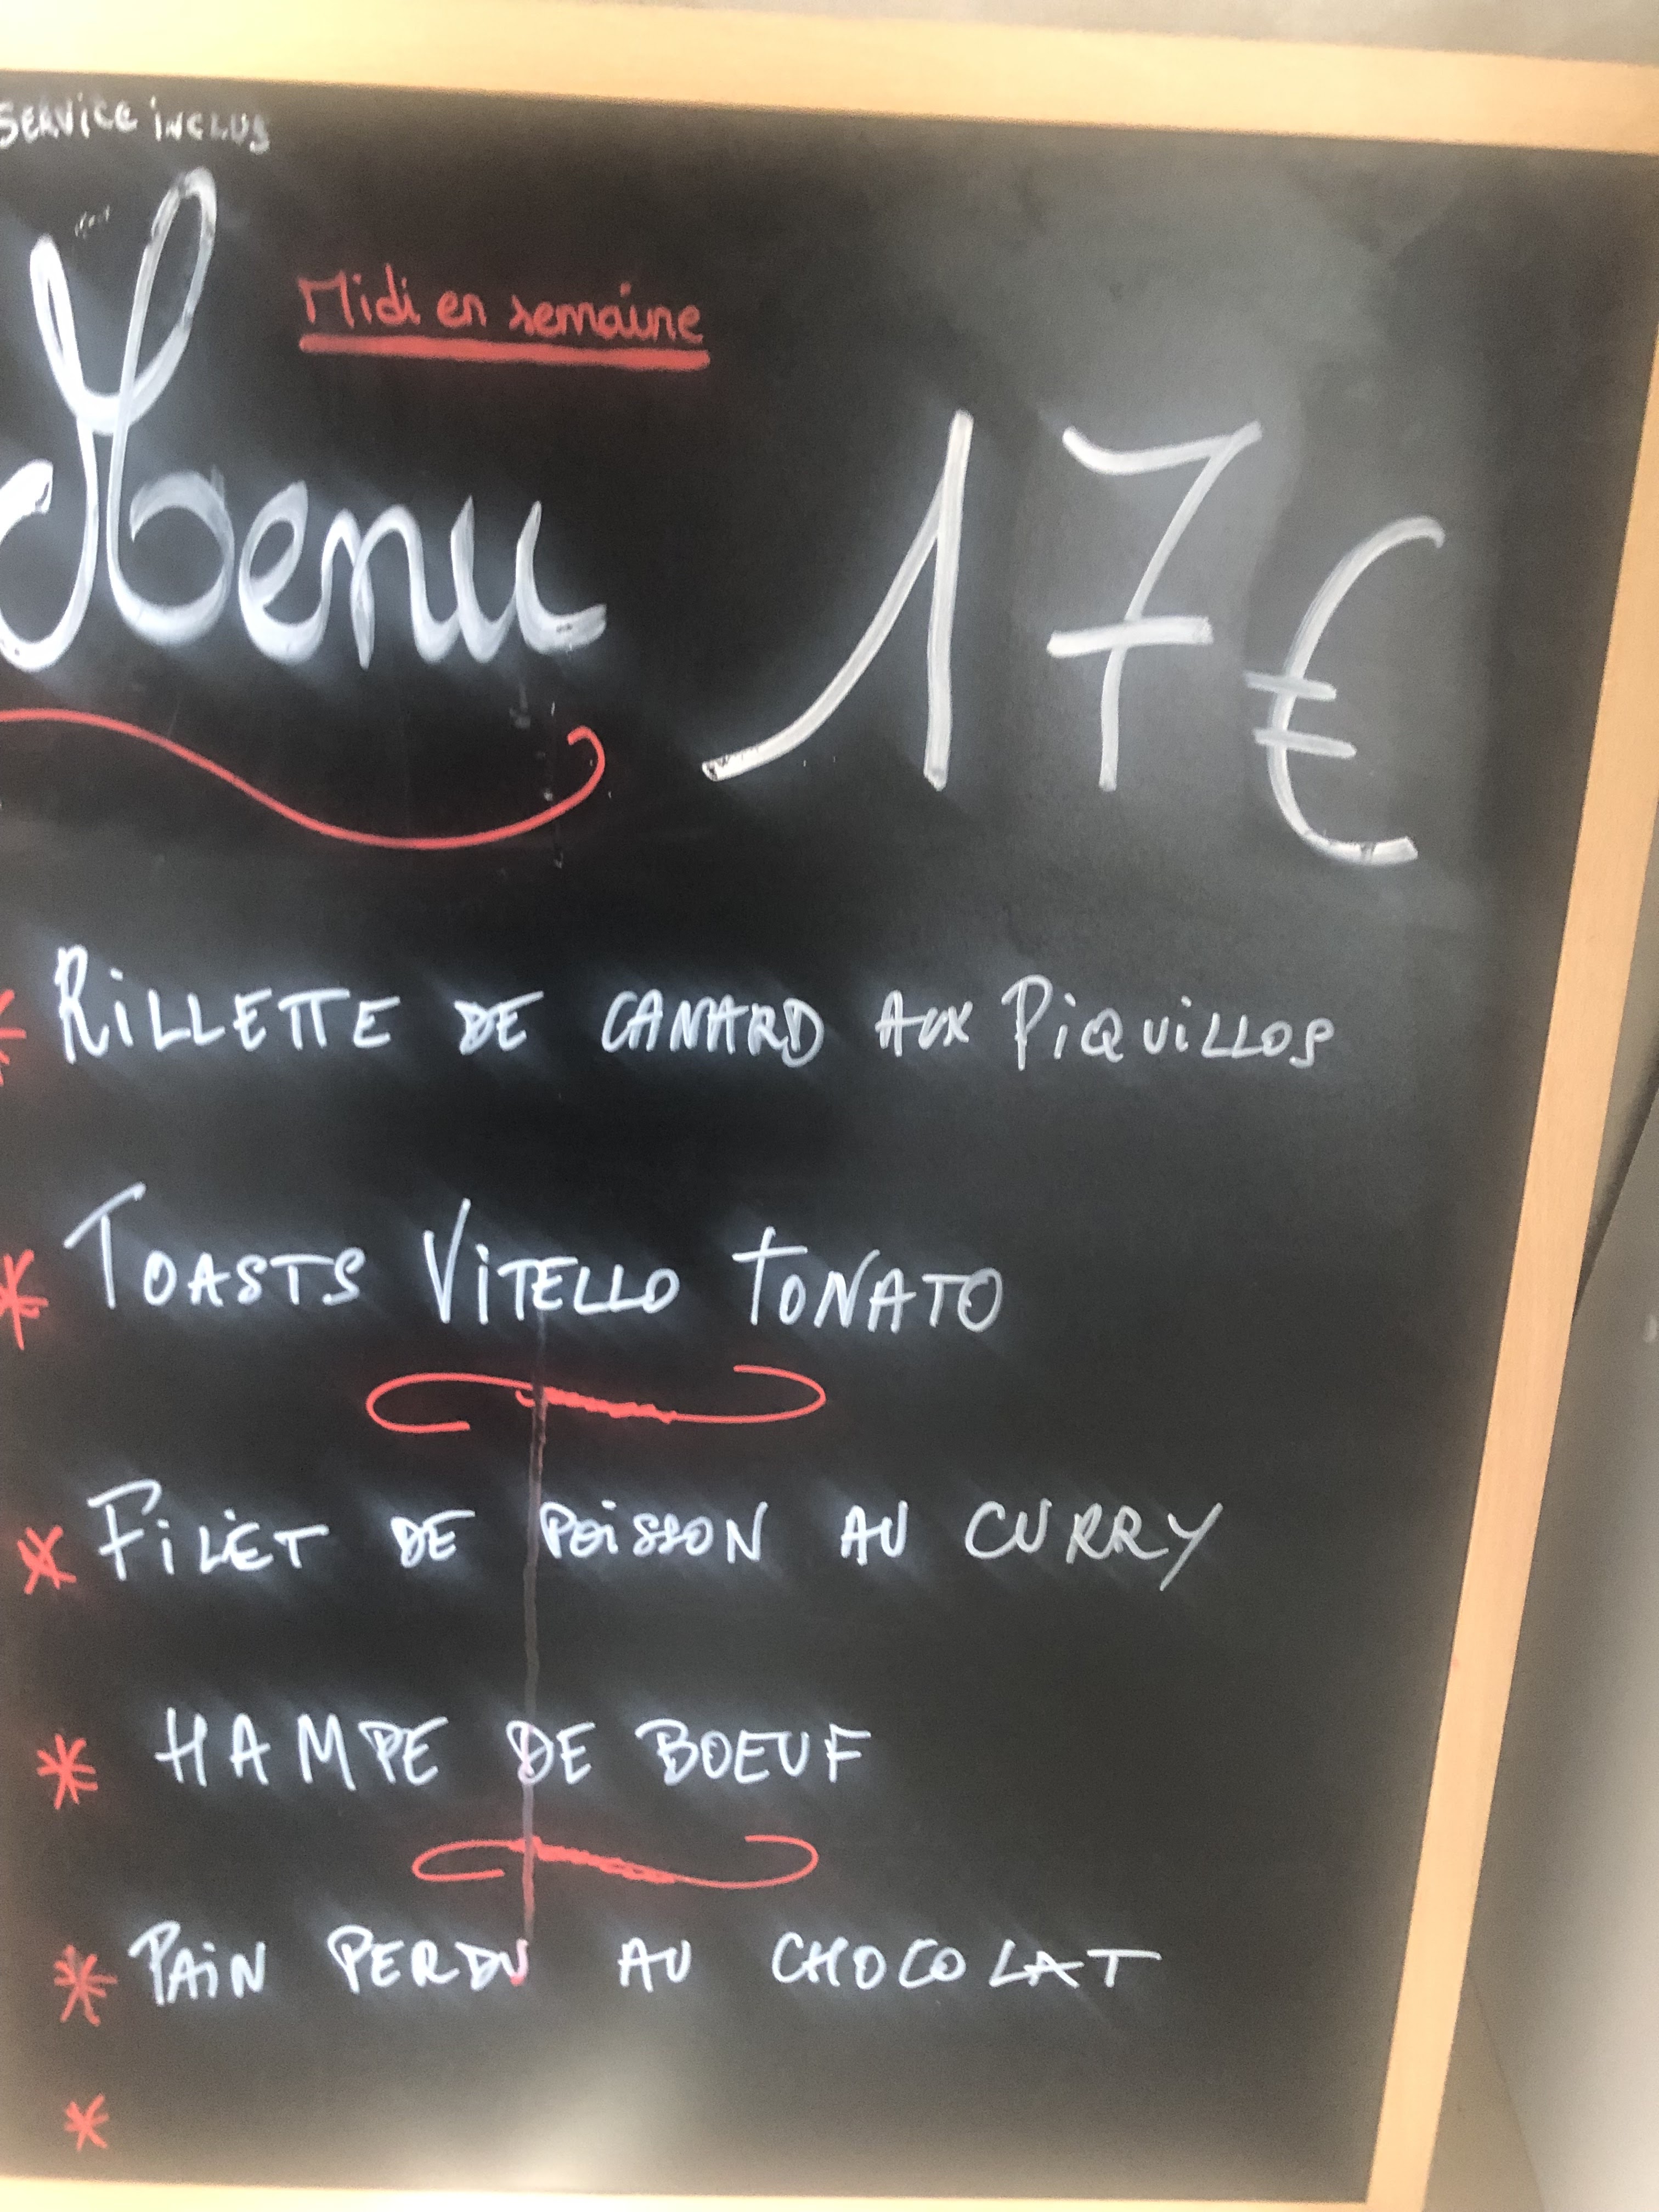 SERVICE INCLUS
Midi en semaine
Menu 17€
* RILLETTE DE CANARD AUX PIQUILLOS
* TOASTS VITELLO TONATO
* FILET DE POISSON AU CURRY
* HAMPE DE BOEUF
* PAIN PERDU AU CHOCOLAT
*